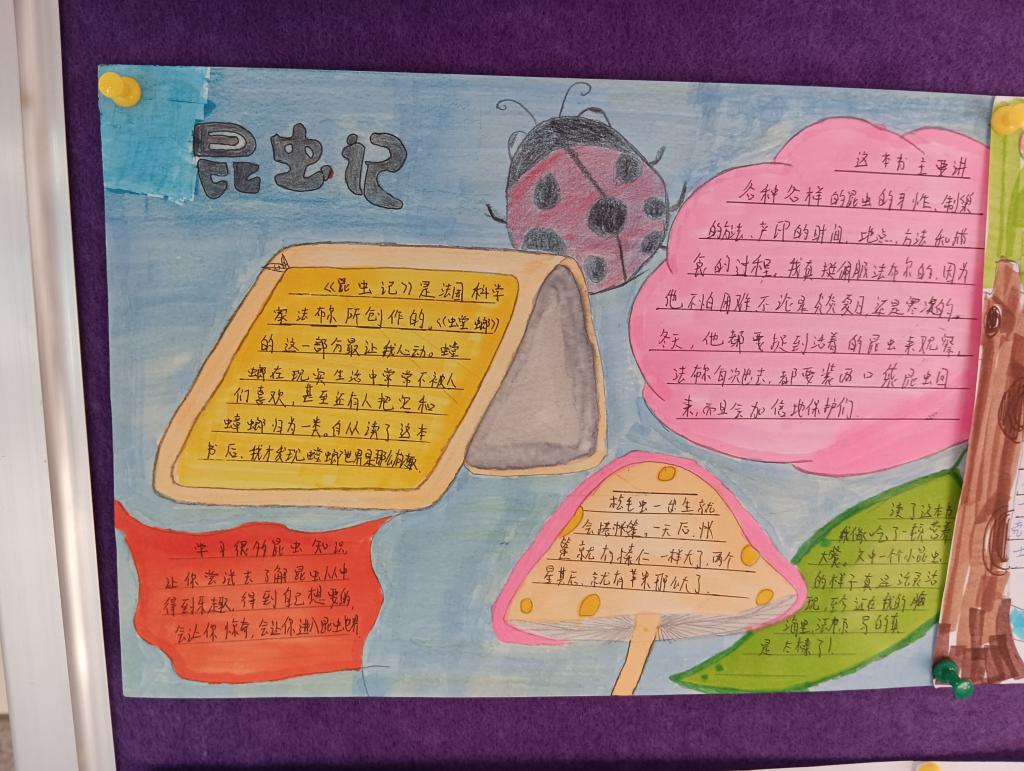 昆虫记
《昆虫记》是法国科学
家法布尔所创作的。《螳螂》
的这一部分最让我心动。螳
螂在现实生活中常常不被人
们喜欢，甚至还有人把它和
蟑螂归为一类。自从读了这本
书后，我才发现螳螂也是那么有趣
这本书主要讲
各种各样的昆虫的寻作、制巢
的方法、产卵的时间、地点、方法和捕
食的过程。我真挺佩服法布尔的，因为
他不怕困难不论是炎炎夏日还是寒冷的
冬天，他都要捉到活着的昆虫来观察，
法布尔每次出去，都要装两口袋昆虫回
来，而且会加倍地保护们
学习很多昆虫知识
让你尝试去了解昆虫从中
得到乐趣，得到自己想要的，
会让你惊奇，会让你进入昆虫世界
松毛虫一出生就
会搭帐篷，一天后，帐
篷就有榛仁一样大了，两个
星期后，就有苹果那么大了。
读了这本书
我像吃了一顿营养
大餐。文中一个个小昆虫
的样子真是活灵活
现，至今还在我的脑
海里，法布尔写的真
是太棒了！